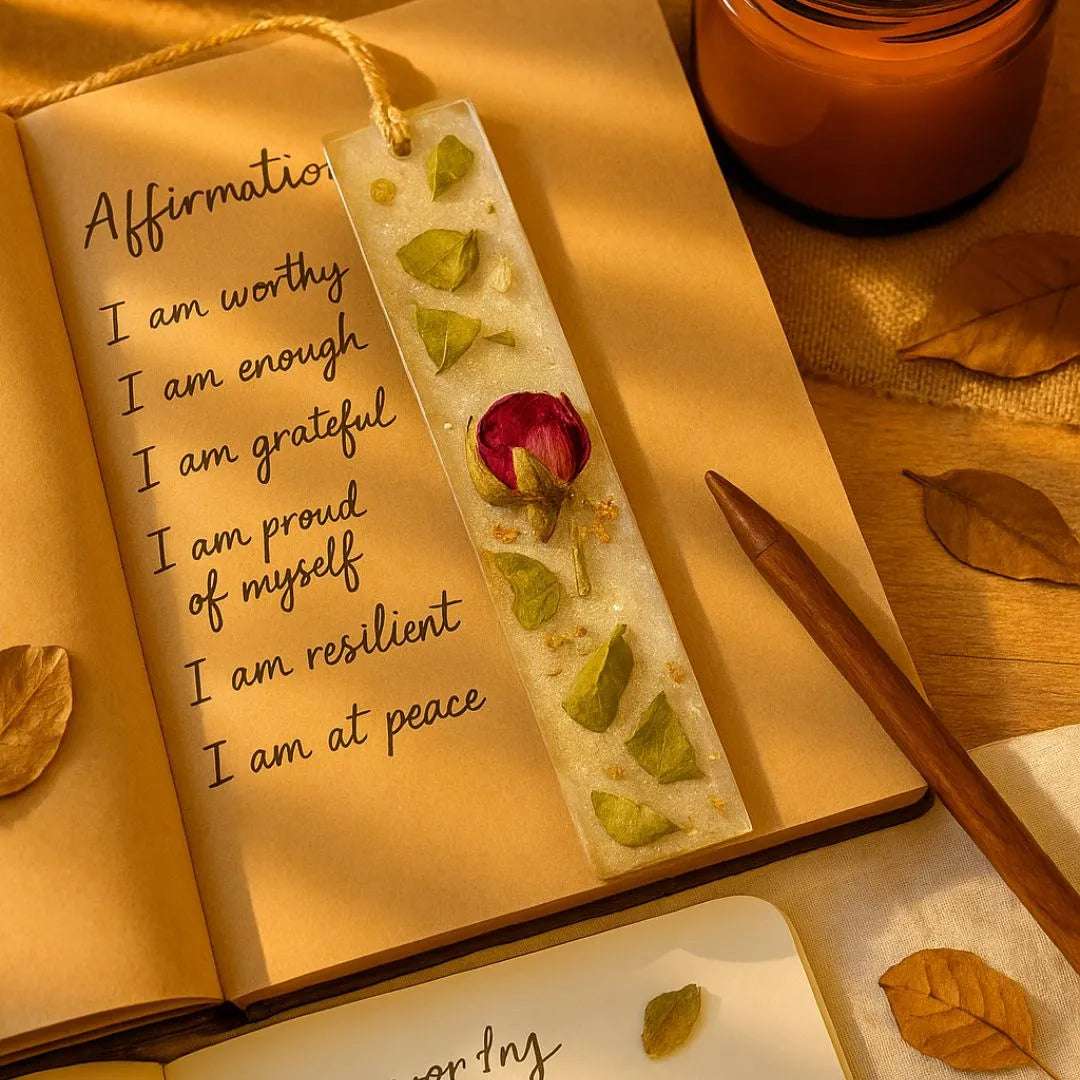 Affirmatio
I am worthy
I am enough
I am grateful
I am proud
of myself
I am resilient
I am at peace